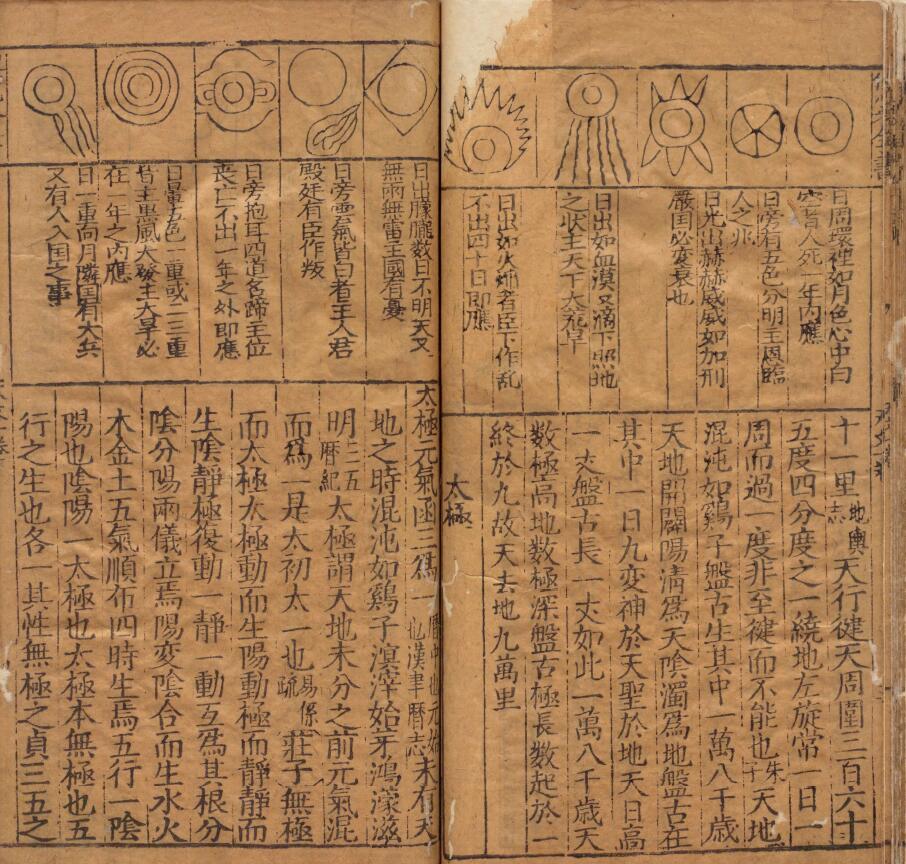 日周環裡如月色心中白
空者人死一年內應
日旁有五色分明主恩臨
人之兆
日光出赫赫威威如加刑
嚴国必变衰也
日出如血漠又滴下照地
之状主天下大荒旱
日出如火焰者臣下作乱
不出四十日即應
十一里地輿志天行健天周圍三百六十
五度四分度之一繞地左旋常一日一
周而過一度非至健而不能也朱子天地
混沌如鷄子盤古生其中一萬八千歲
天地開闢陽清爲天陰濁爲地盤古在
其中一日九变神於天聖於地天日高
一丈盤古長一丈如此一萬八千歲天
数極高地数極深盤古極長数起於一
終於九故天去地九萬里
太極
日出朦朧数日不明天又
無雨無雷主國有憂
日旁雲氣皆白者主人君
殿廷有臣作叛
日旁抱耳四道名蹄主位
丧亡不出一年之外即應
日暈五色一重或二三重
皆主惡風大發主大旱必
在一年之內應
日一重向月隣国有大兵
又有人入国之事
太極元氣函三爲一漢書曆志未有天
地之時混沌如鷄子溟涬始芽鴻濛滋
明三五曆紀太極謂天地未分之前元氣混
而爲一是太初太一也易係疏莊子無極
而太極太極動而生陽動極而静静而
生陰静極復動一静一動互爲其根分
陰分陽兩儀立焉陽变陰合而生水火
木金土五氣順布四時生焉五行一陰
陽也陰陽一太極也太極本無極也五
行之生也各一其性無極之貞三五之